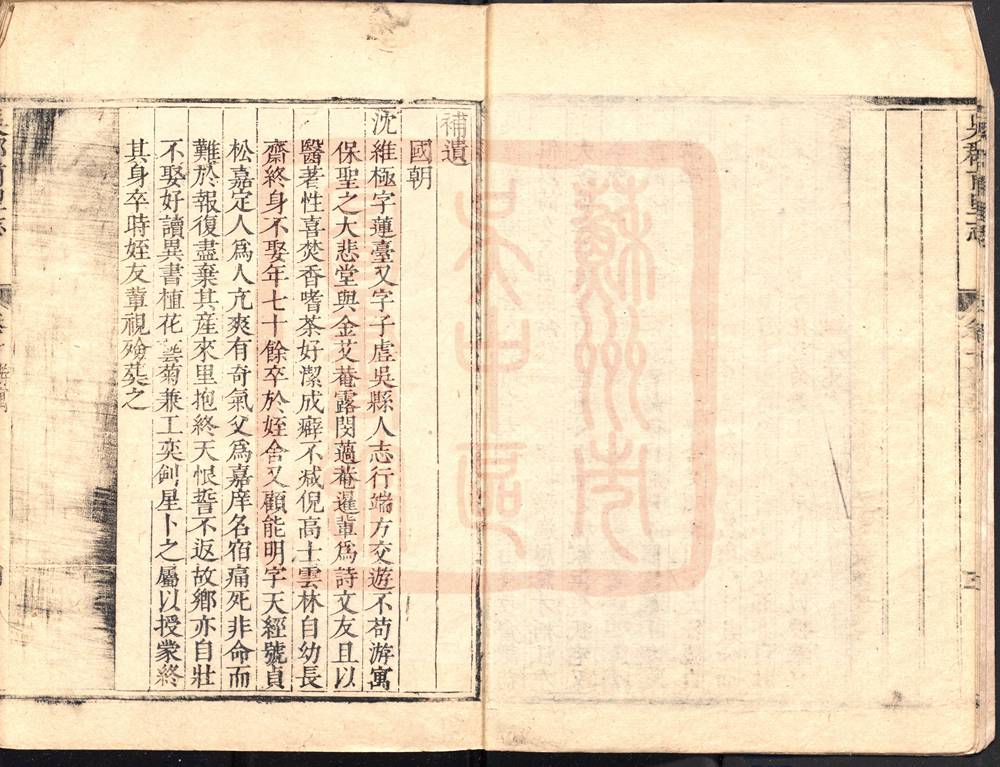 補遺
國朝
沈維極字蓮臺又字子虛吳縣人志行端方交遊不苟游寓
保聖之大悲堂與金艾菴露閔薖菴暹輩爲詩文友且以
醫著性喜焚香嗜茶好潔成癖不减倪高士雲林自幼長
齋終身不娶年七十餘卒於姪舍又顧能明字天經號貞
松嘉定人爲人亢爽有奇氣父爲嘉庠名宿痛死非命而
難於報復盡棄其產來里抱終天恨誓不返故鄉亦自壯
不娶好讀異書植花藝菊兼工奕劍星卜之屬以授蒙終
其身卒時姪友輩視殮葬之
蘇州市
吳中區